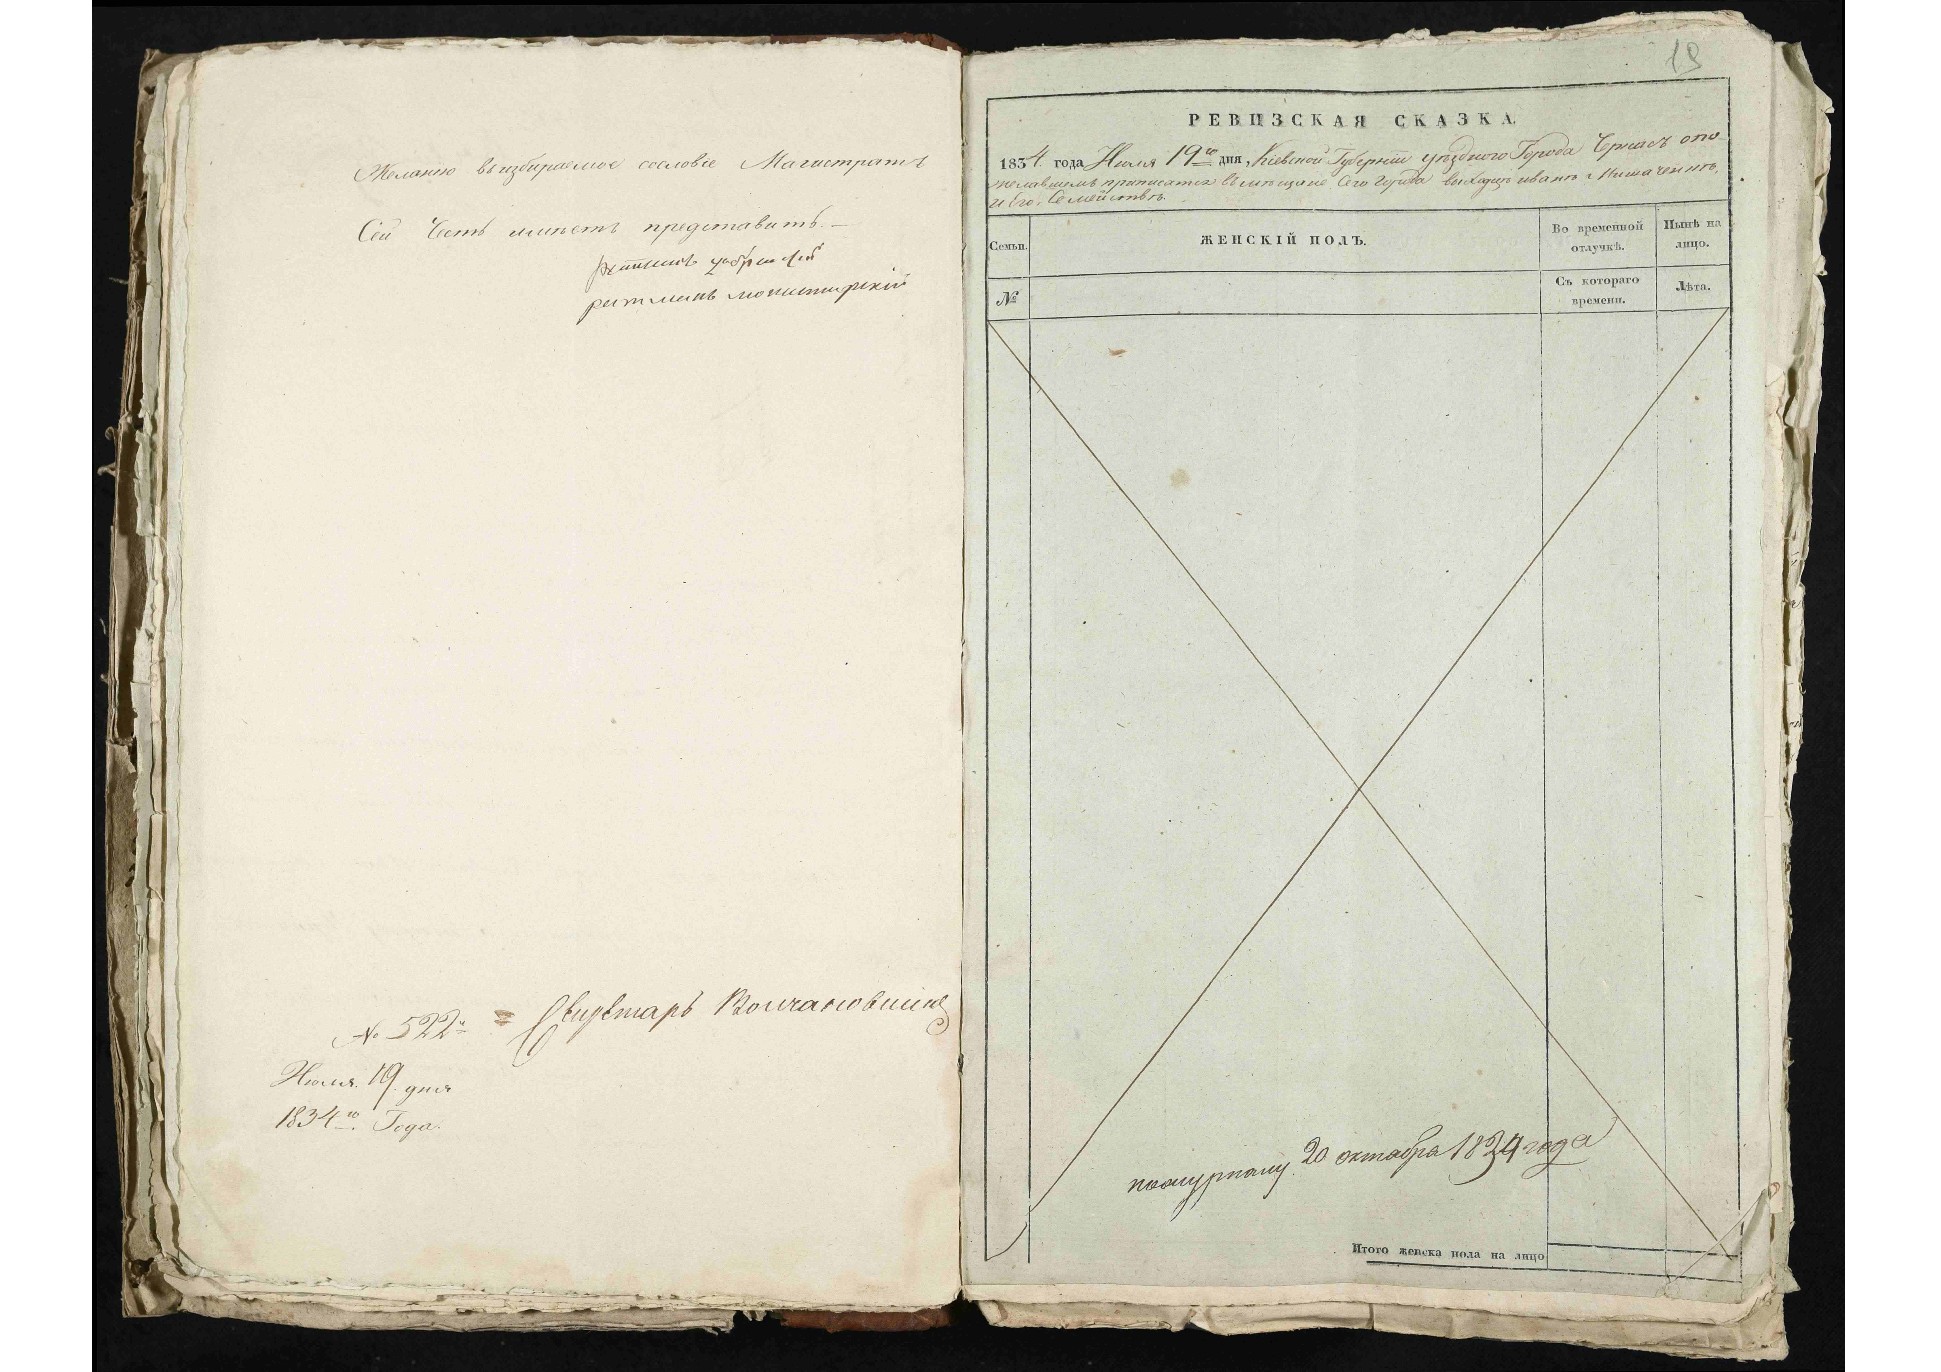 Желанію въ избираемое сословіе Магистратъ
Сей Честь имѣетъ представить. —
ратманъ
ратманъ монастырскій
№ 522й = Секретарь Волчановскій
Июля 19 дня
1834го Года.
19
РЕВИЗСКАЯ СКАЗКА
1834 года Июля 19го дня, Кіевской Губерніи уѣзднаго Города Черкасъ опо
желавшемъ приписатся въ мѣщане Сего Города выходцѣ иванѣ Мишаченкѣ,
и Его Семействѣ.
Семьи. ЖЕНСКІЙ ПОЛЪ. Во временной отлучкѣ. Нынѣ на лицо.
№ Съ котораго времени. Лѣта.
по журналу 20 октабра 1834 года
Итого женска пола на лицо